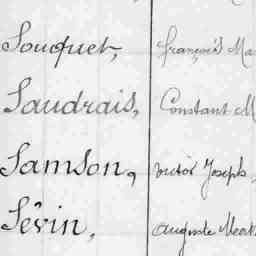 Souquet, françois Ma
Saudrais, Constant M
Samson, victor Joseph,
Sévin, auguste